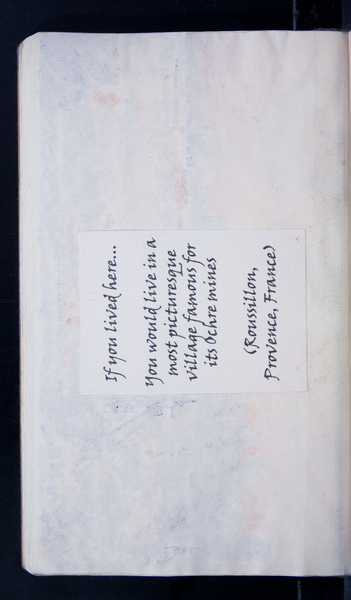 If you lived here...
You would live in a
most picturesque
village famous for
its Ochre mines
(Roussillon,
Provence, France)